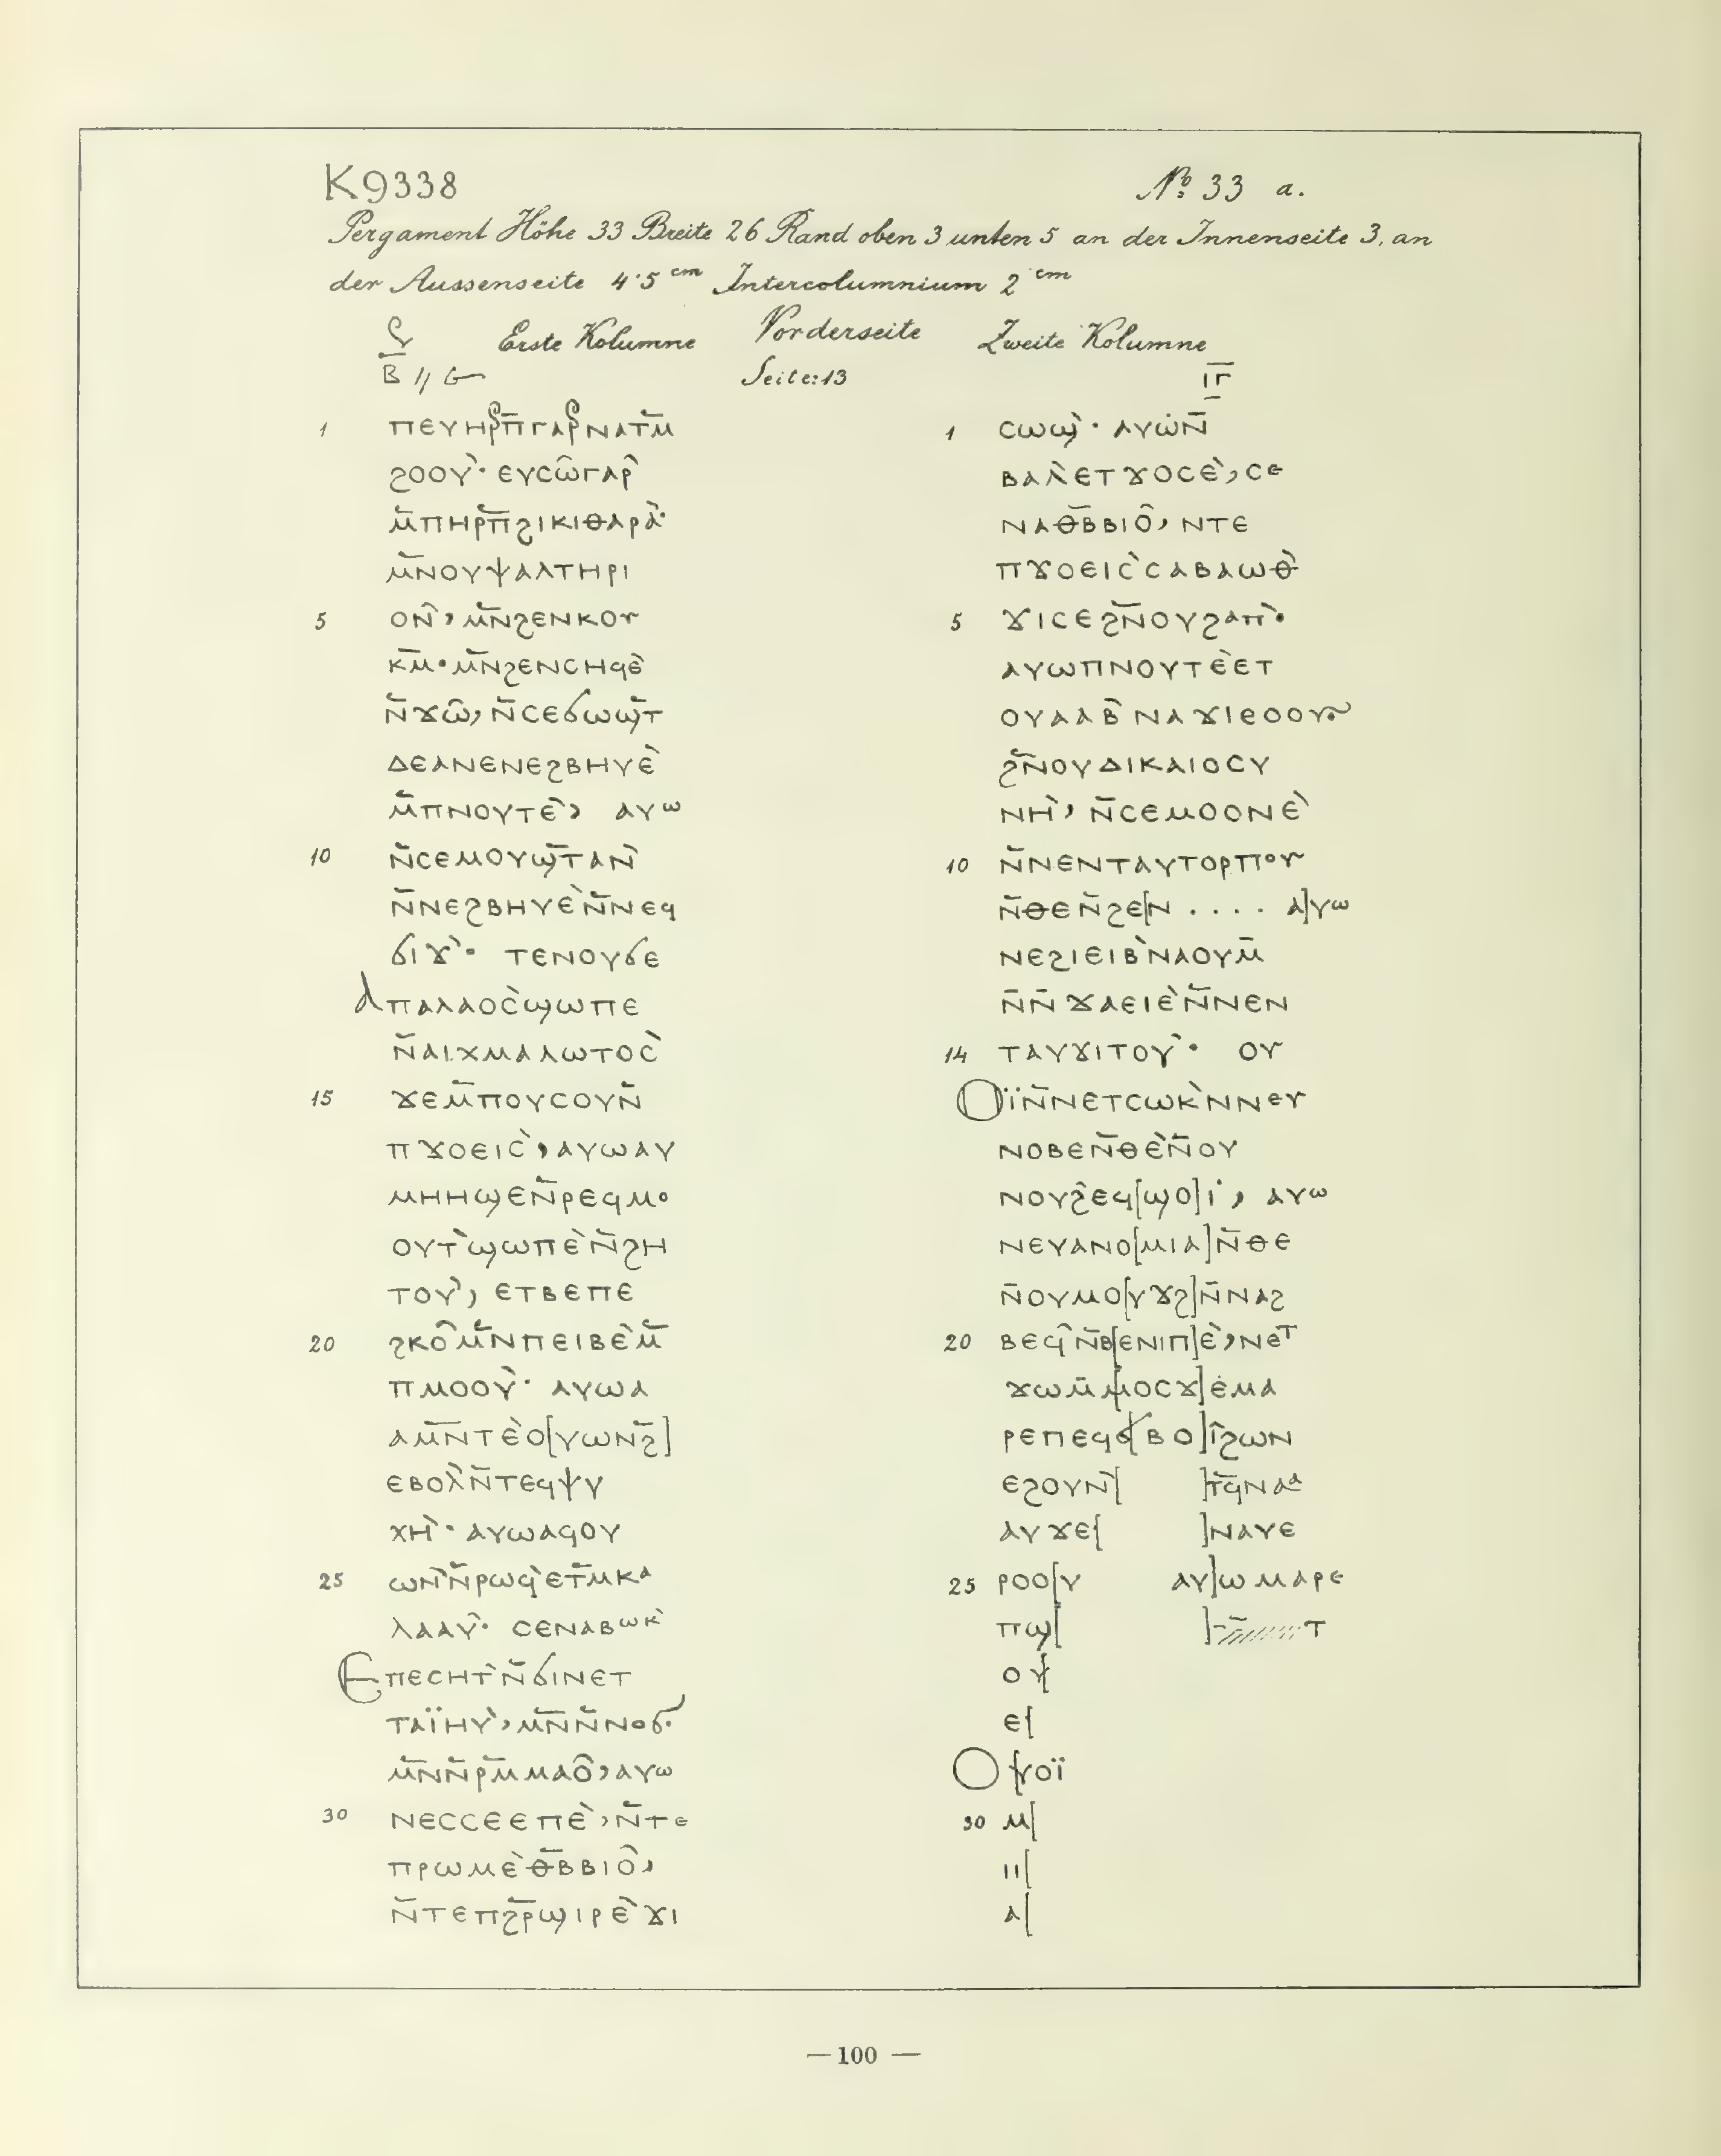 K9338 № 33 a.
Pergament Höhe 33 Breite 26 Rand oben 3 unten 5 an der Innenseite 3, an
der Aussenseite 4·5 cm Intercolumnium 2 cm
Erste Kolumne Vorderseite Zweite Kolumne
Ⲃ // Seite: 13 ⲓ̅ⲅ̅
1 ⲡⲉⲩⲏⲣⲡ̅ⲅⲁⲣⲛⲁⲧⲙ̅
ϩⲟⲟⲩ̀· ⲉⲩⲥⲱ̂ⲅⲁⲣ̂
ⲙ̅ⲡⲏⲣⲡ̅ϩⲓⲕⲓⲑⲁⲣⲁ̀·
ⲙ̅ⲛⲟⲩⲯⲁⲗⲧⲏⲣⲓ
5 ⲟⲛ̂, ⲙ̅ⲛ̅ϩⲉⲛⲕⲟⲩ
ⲕⲙ̅· ⲙ̅ⲛ̅ϩⲉⲛⲥⲏϥⲉ̀
ⲛ̅ϫⲱ̂, ⲛ̅ⲥⲉϭⲱϣ̅ⲧ
ⲇⲉⲁⲛⲉⲛⲉϩⲃⲏⲩⲉ̀
ⲙ̅ⲡⲛⲟⲩⲧⲉ̀, ⲁⲩⲱ
10 ⲛ̅ⲥⲉⲙⲟⲩϣ̅ⲧⲁⲛ̀
ⲛ̅ⲛⲉϩⲃⲏⲩⲉ̀ⲛ̅ⲛⲉϥ
ϭⲓϫ̀· ⲧⲉⲛⲟⲩϭⲉ
ⲁⲡⲁⲗⲁⲟⲥ̀ϣⲱⲡⲉ
ⲛ̅ⲁⲓⲭⲙⲁⲗⲱⲧⲟⲥ̀
15 ϫⲉⲙ̅ⲡⲟⲩⲥⲟⲩⲛ̅
ⲡϫⲟⲉⲓⲥ̀, ⲁⲩⲱⲁⲩ
ⲙⲏⲏϣⲉⲛ̅ⲣⲉϥⲙⲟ
ⲟⲩⲧ̀ϣⲱⲡⲉ̀ⲛ̅ϩⲏ
ⲧⲟⲩ̀, ⲉⲧⲃⲉⲡⲉ
20 ϩⲕⲟ̂ⲙ̅ⲛⲡⲉⲓⲃⲉ̀ⲙ̅
ⲡⲙⲟⲟⲩ̀· ⲁⲩⲱⲁ
ⲁⲙ̅ⲛ̅ⲧⲉ̀ⲟ[ⲩⲱⲛϩ̅]
ⲉⲃⲟⲗ̀ⲛ̅ⲧⲉϥⲯⲩ
ⲭⲏ̀· ⲁⲩⲱⲁϥⲟⲩ
25 ⲱⲛ̀ⲛ̅ⲣⲱϥ̀ⲉⲧ̅ⲙⲕⲁ
ⲗⲁⲁⲩ̂· ⲥⲉⲛⲁⲃⲱⲕ̀
ⲉⲡⲉⲥⲏⲧ̀ⲛ̅ϭⲓⲛⲉⲧ
ⲧⲁⲓ̈ⲏⲩ̀, ⲙ̅ⲛ̅ⲛ̅ⲛⲟϭ·
ⲙ̅ⲛ̅ⲛ̅ⲣ̅ⲙⲙⲁⲟ̂, ⲁⲩⲱ
30 ⲛⲉⲥⲥⲉⲉⲡⲉ̀, ⲛ̅ⲧⲉ
ⲡⲣⲱⲙⲉ̀ⲑ̅ⲃⲃⲓⲟ̂,
ⲛ̅ⲧⲉⲡϩⲣ̅ϣⲓⲣⲉ̀ϫⲓ
1 ⲥⲱϣ̀· ⲁⲩⲱⲛ̅
ⲃⲁⲗ̀ⲉⲧϫⲟⲥⲉ̀, ⲥⲉ
ⲛⲁⲑ̅ⲃⲃⲓⲟ̂, ⲛⲧⲉ
ⲡϫⲟⲉⲓⲥ̀ⲥⲁⲃⲁⲱⲑ̀
5 ϫⲓⲥⲉϩⲛ̅ⲟⲩϩⲁⲡ̀·
ⲁⲩⲱⲡⲛⲟⲩⲧⲉ̀ⲉⲧ
ⲟⲩⲁⲁⲃ̀ⲛⲁϫⲓⲉⲟⲟⲩ
ϩⲛ̅ⲟⲩⲇⲓⲕⲁⲓⲟⲥⲩ
ⲛⲏ̀, ⲛ̅ⲥⲉⲙⲟⲟⲛⲉ̀
10 ⲛ̅ⲛⲉⲛⲧⲁⲩⲧⲟⲣⲡⲟⲩ
ⲛ̅ⲑⲉⲛ̅ϩⲉ[ⲛ . . . . ⲁ]ⲩⲱ
ⲛⲉϩⲓⲉⲓⲃ̀ⲛⲁⲟⲩⲙ̅
ⲛ̅ⲛ̅ϫⲁⲉⲓⲉ̀ⲛ̅ⲛⲉⲛ
14 ⲧⲁⲩϫⲓⲧⲟⲩ̀· ⲟⲩ
ⲟⲓ̈ⲛ̅ⲛⲉⲧⲥⲱⲕ̀ⲛⲛⲉⲩ
ⲛⲟⲃⲉⲛ̅ⲑⲉ̀ⲛ̅ⲟⲩ
ⲛⲟⲩϩ̀ⲉϥ[ϣⲟ]ⲓ̀, ⲁⲩⲱ
ⲛⲉⲩⲁⲛⲟ[ⲙⲓⲁ]ⲛ̅ⲑⲉ
ⲛ̅ⲟⲩⲙⲟ[ⲩϫϩ]ⲛ̅ⲛⲁϩ
20 ⲃⲉϥ̀ⲛ̅ⲃ[ⲉⲛⲓⲡ]ⲉ̀, ⲛⲉⲧ
ϫⲱⲙ̅ⲙ[ⲟⲥϫ]ⲉⲙⲁ
ⲣⲉⲡⲉϥϭ[ⲃⲟ]ⲓ̂ϩⲱⲛ
ⲉϩⲟⲩⲛ̀[ ]ⲧϥ̅ⲛⲁⲁ
ⲁⲩϫⲉ[ ]ⲛⲁⲩⲉ
25 ⲣⲟⲟ[ⲩ ⲁⲩ]ⲱⲙⲁⲣⲉ
ⲡϣ[ ] ⲧ
ⲟⲩ[
ⲉ[
ⲟⲩⲟⲓ̈
30 ⲙ[
ⲓⲓ[
ⲁ[
— 100 —